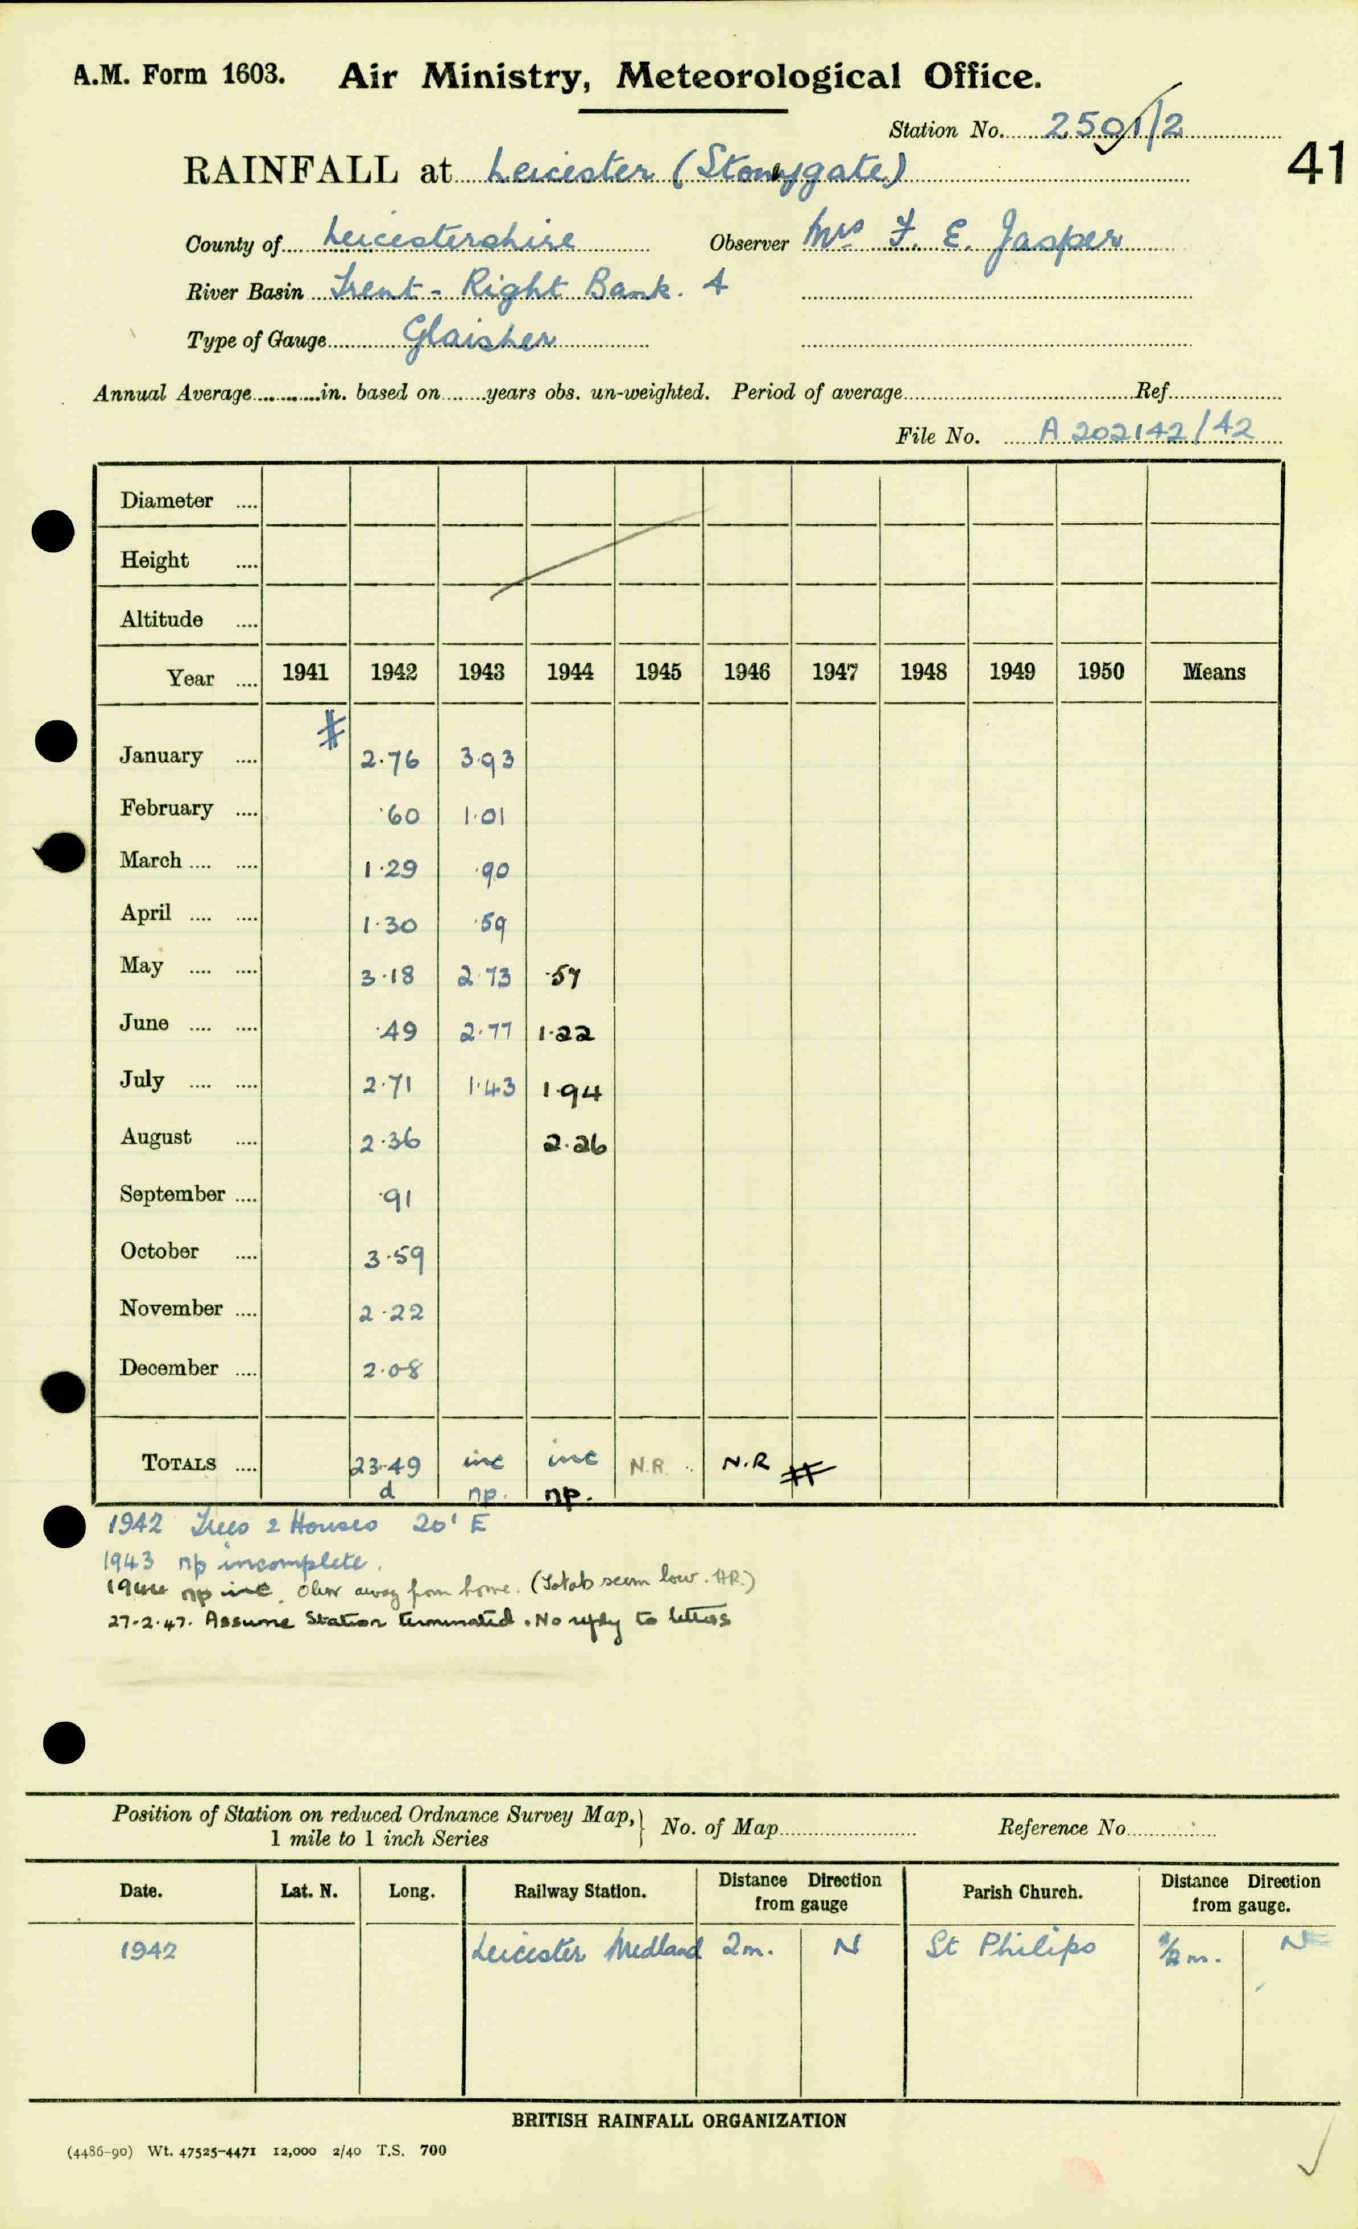 A.M. Form 1603. Air Ministry, Meteorological Office.
Station No. 2591/2
41
RAINFALL at Leicester (Stoneygate)
County of Leicestershire Observer Mrs F. E. Jasper
River Basin Trent - Right Bank. 4
Type of Gauge Glaisher
Annual Average in. based on years obs. un-weighted. Period of average Ref
File No. A 202142/42
Diameter
Height
Altitude
Year 1941 1942 1943 1944 1945 1946 1947 1948 1949 1950 Means
January 2.76 3.93
February .60 1.01
March 1.29 .90
April 1.30 .59
May 3.18 2.73 .57
June .49 2.77 1.22
July 2.71 1.43 1.94
August 2.36 2.26
September .91
October 3.59
November 2.22
December 2.08
TOTALS 23.49 inc inc N.R. N.R
d np. np.
1942 Trees 2 Houses 20' E
1943 np incomplete.
1944 np inc. Obsr away from home. (Totals seem low. HR.)
27.2.47. Assume Station terminated. No reply to letters
Position of Station on reduced Ordnance Survey Map, No. of Map Reference No.
1 mile to 1 inch Series
Date. Lat. N. Long. Railway Station. Distance Direction from gauge Parish Church. Distance Direction from gauge.
1942 Leicester Midland 2m. N St Philips 1/2 m. N
BRITISH RAINFALL ORGANIZATION
(4486-90) Wt. 47525-4471 12,000 2/40 T.S. 700